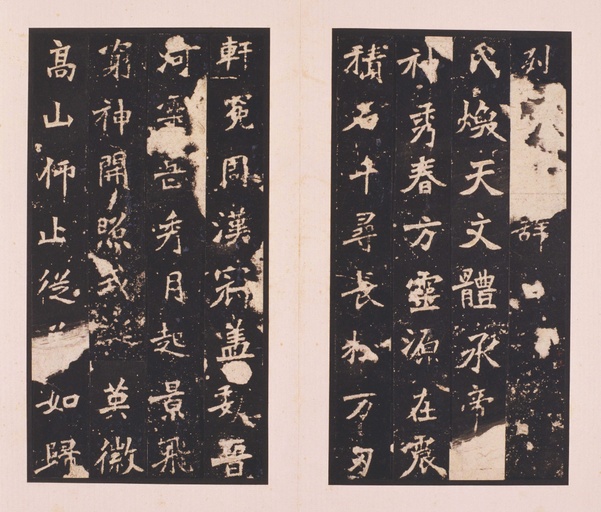 刊辭曰
氏煥天文體承帝
神秀春方靈源在震
積石千尋長松万刃
軒冕周漢冠盖魏晉
河靈岳秀月起景飛
窮神開照式誕英徽
高山仰止從如歸